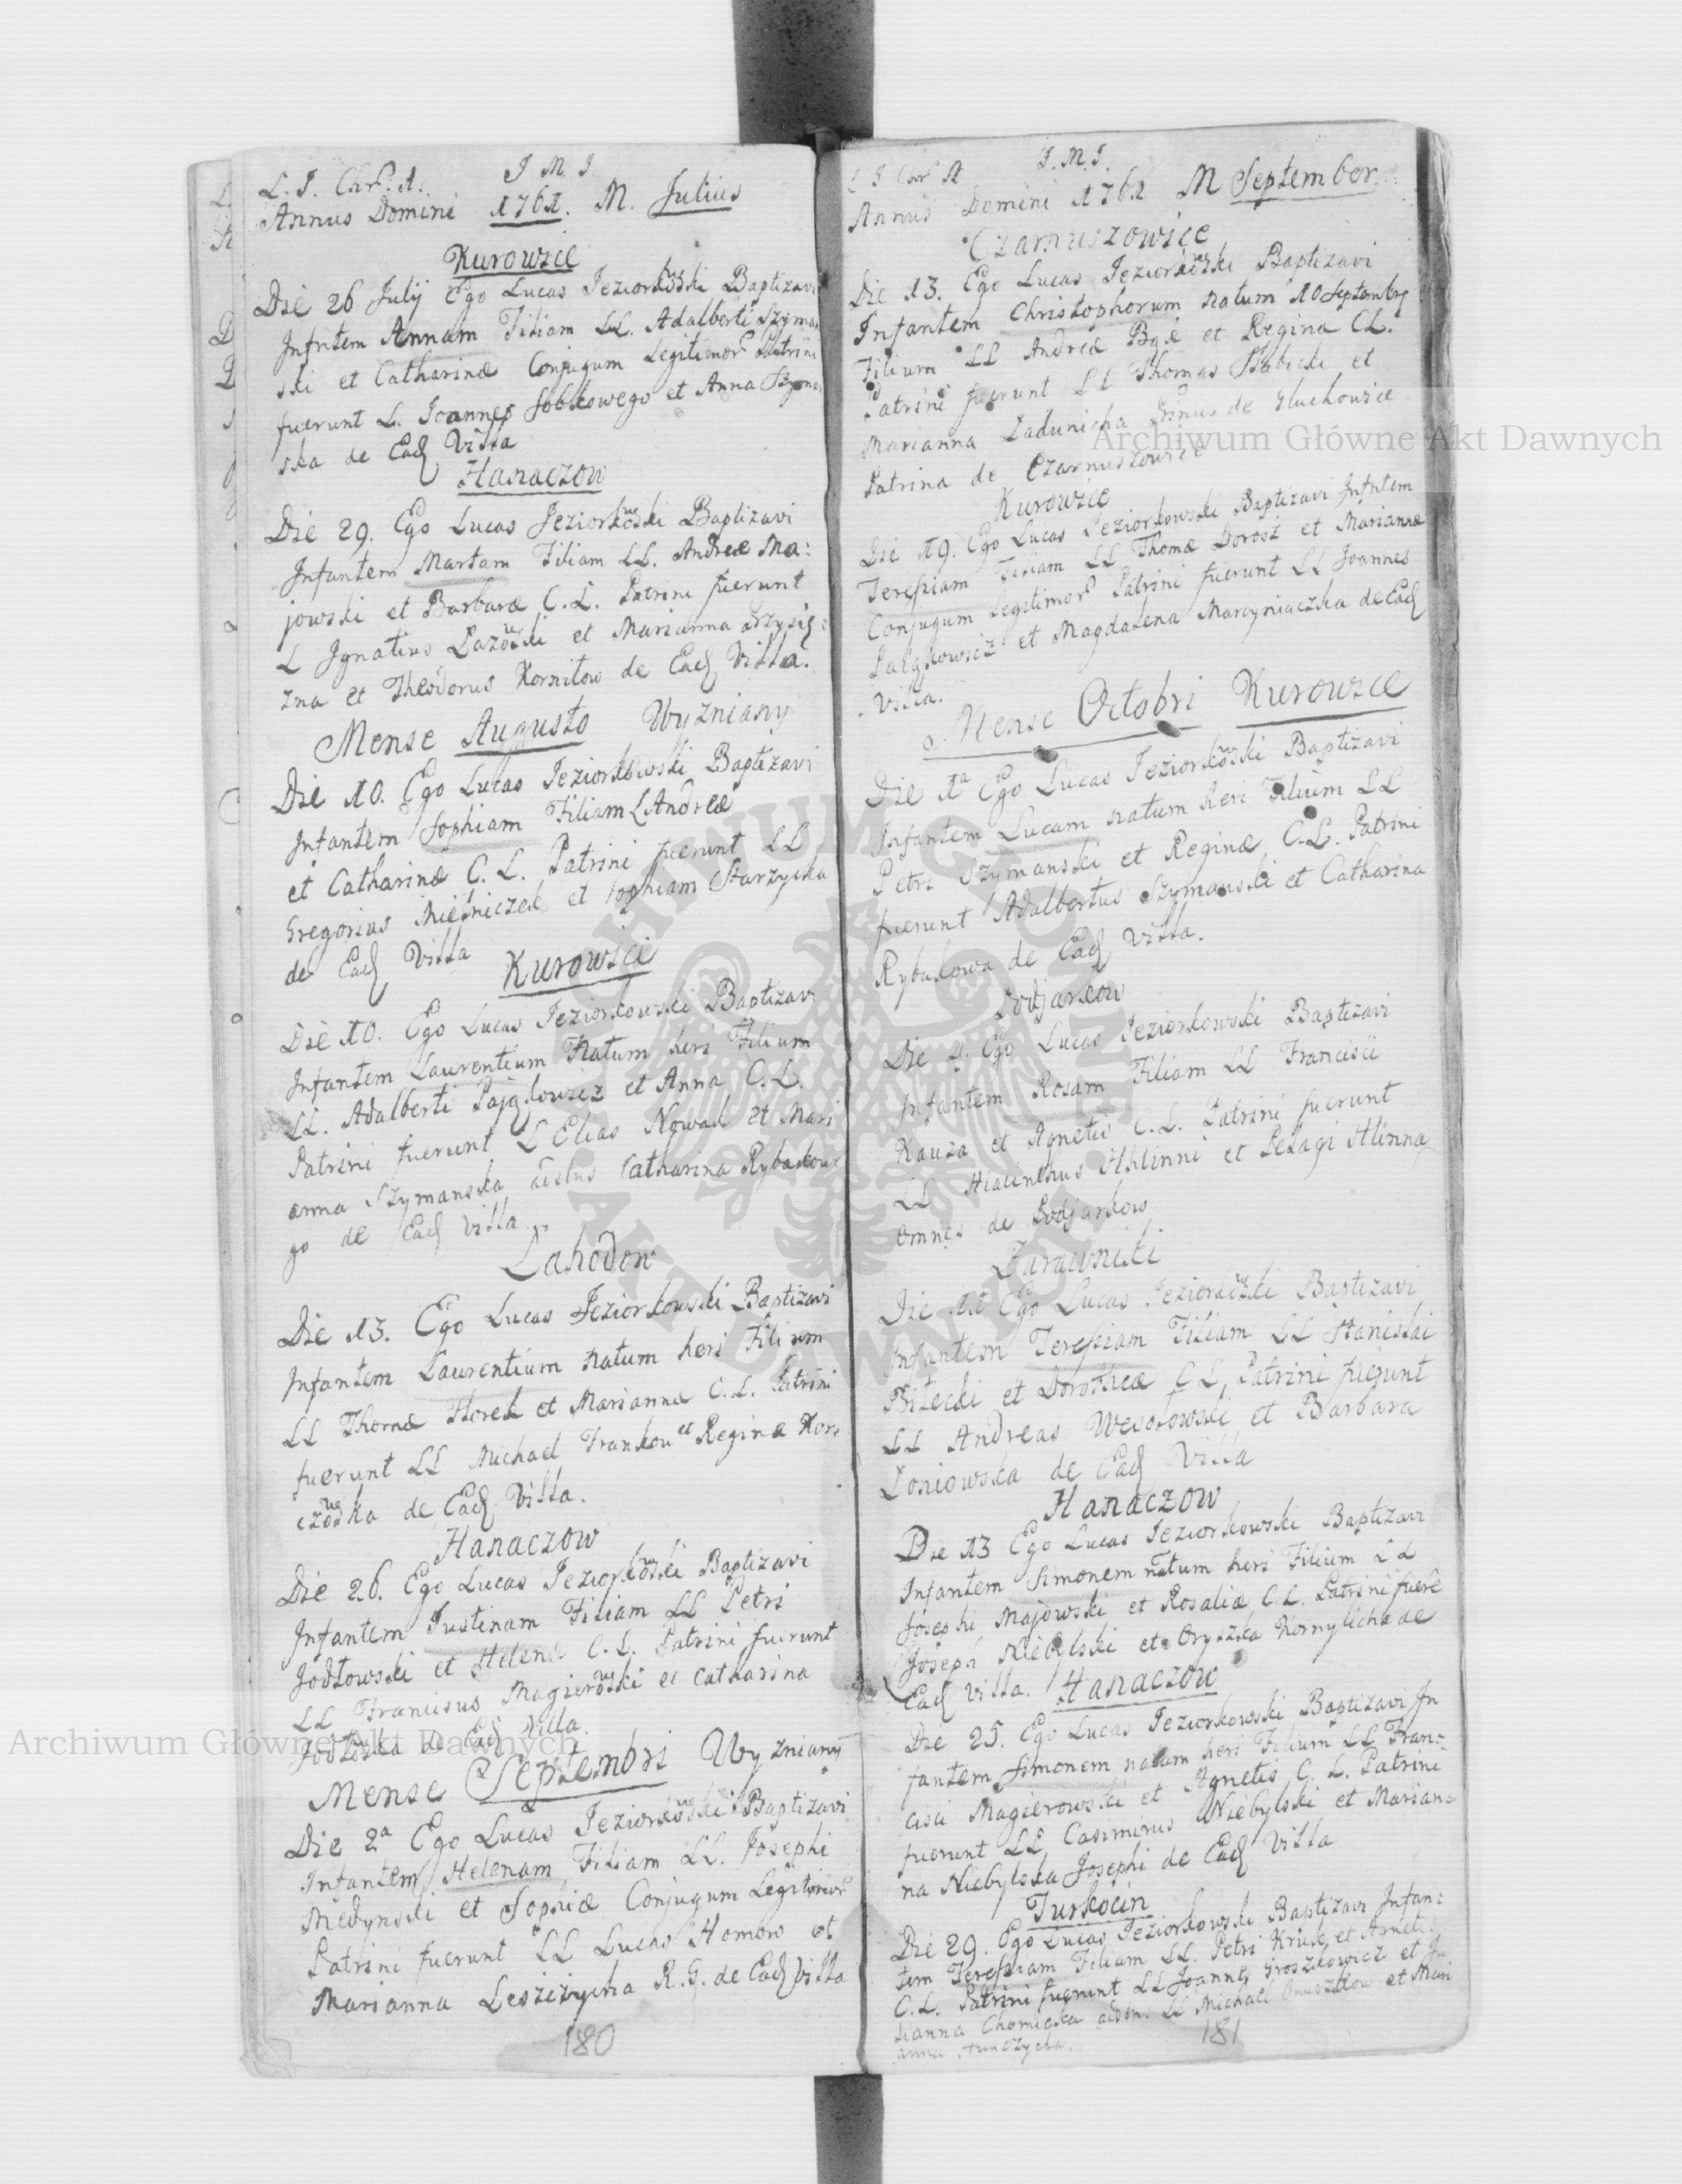 L. J. Chr. A. J M J
Annus Domini 1761. M. Julius
Kurowice
Die 26 July Ego Lucas Jeziorkowski Baptizavi
Infntem Annam Filiam LL. Adalberti Szyman
ski et Catharinæ Conjugum Legitimor Patrini
fuerunt L. Joannes Sobkowego et Anna Szyman
ska de Ead Villa
Hanaczow
Die 29. Ego Lucas Jeziorkowski Baptizavi
Infantem Martam Filiam LL. Andreæ Ma:
jowski et Barbaræ C. L. Patrini fuerunt
L Ignatius Lazowski et Marianna
zna et Theodorus Kornitow de Ead Villa.
Mense Augusto Wyzniany
Die 10. Ego Lucas Jeziorkowski Baptizavi
Infantem Sophiam Filiam L Andreæ
et Catharinæ C. L. Patrini fuerunt LL
Gregorius Mięśniczek et Sophiam Starzycka
de Ead Villa
Kurowice
Die 10. Ego Lucas Jeziorkowski Baptizavi
Infantem Laurentium Natum heri Filium
LL. Adalberti Pająkowicz et Anna C. L.
Patrini fuerunt L Elias Nowak et Mari
anna Szymanska Catharina Rybakowe
go de Ead Villa.
Lahodow
Die 13. Ego Lucas Jeziorkowski Baptizavi
Infantem Laurentium Natum heri Filium
LL Thomæ Horek et Mariannæ C. L. Patrini
fuerunt LL Michael Frankow et Regina Kor
czowska de Ead Villa.
Hanaczow
Die 26. Ego Lucas Jeziorkowski Baptizavi
Infantem Justinam Filiam LL Petri
Jodłowski et Helenæ C. L. Patrini fuerunt
LL Franciscus Magierowski et Catharina
Jodłoska de Ead Villa.
Mense Septembri Wyzniany
Die 2a Ego Lucas Jeziorkowski Baptizavi
Infantem Helenam Filiam LL. Josephi
Medynski et Sophiæ Conjugum Legitimor
Patrini fuerunt LL Lucas Homow et
Marianna Leszizycha R. G. de Ead Villa
180
L J Chr A J. M. J.
Annus Domini 1761 M September
Czarnuszowice
Die 13. Ego Lucas Jeziorkowski Baptizavi
Infantem Christophorum Natum 10 Septembrs
Filium LL Andreæ Bąk et Regina C L.
Patrini fuerunt LL Thomas Słobicki et
Marianna Ladunicha de Gluchowice
Patrina de Czarnuszowice
Kurowice
Die 19. Ego Lucas Jeziorkowski Baptizavi Infntem
Teressiam Filiam LL Thomæ Dorosz et Mariannæ
Conjugum Legitimor Patrini fuerunt LL Joannes
Paiąkowicz et Magdalena Marcyniaczka de Ead
Villa.
Mense Octobri Kurowice
Die 1a Ego Lucas Jeziorkowski Baptizavi
Infantem Lucam natum heri Filium LL
Petri Szymanski et Reginæ C. L. Patrini
fuerunt Adalbertus Szymanski et Catharina
Rybakowa de Ead Villa.
Podjarkow
Die 4. Ego Lucas Jeziorkowski Baptizavi
Infantem Rosam Filiam LL Francisci
Kauza et Agnetis C. L. Patrini fuerunt
LL Hiacinthus Hhlinni et Pelagi Hlinna
omnes de Podjarkow
Zarawniki
Die 11 Ego Lucas Jeziorkowski Baptizavi
Infantem Teressiam Filiam LL Stanislai
Bilecki et Dorotheæ C L, Patrini fuerunt
LL Andreas Wesołowski et Barbara
Loniowska de Ead Villa
Hanaczow
Die 13 Ego Lucas Jeziorkowski Baptizavi
Infantem Simonem natum heri Filium LL
Josephi Majowski et Rosaliæ C. L. Patrini fuere
Joseph Niebylski et Oryszka Kornylicha de
Ead Villa. Hanaczow
Die 25. Ego Lucas Jeziorkowski Baptizavi In
fantem Simonem natum heri Filium LL Fran:
cisci Magierowski et Agnetis C. L. Patrini
fuerunt LL Casimirus Niebylski et Marian:
na Niebylska Josephi de Ead Villa
Turkocin
Die 29. Ego Lucas Jeziorkowski Baptizavi Infan:
tem Teressiam Filiam LL. Petri Kruk et Agnetis
C. L. Patrini fuerunt LL Joannes Groszkowicz et Ju
lianna Chomicka LL Michael et Mari
anna
181
Archiwum Główne Akt Dawnych
Archiwum Główne Akt Dawnych
ARCHIWUM GŁÓWNE AKT DAWNYCH